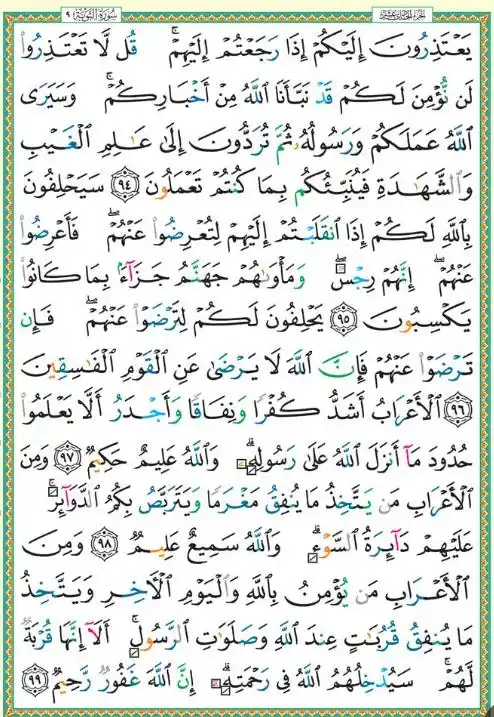 سُورَةُ التَّوبَةِ ٩
الجزء الحادي عشر
يَعۡتَذِرُونَ إِلَيۡكُمۡ إِذَا رَجَعۡتُمۡ إِلَيۡهِمۡۚ قُل لَّا تَعۡتَذِرُواْ
لَن نُّؤۡمِنَ لَكُمۡ قَدۡ نَبَّأَنَا ٱللَّهُ مِنۡ أَخۡبَارِكُمۡۚ وَسَيَرَى
ٱللَّهُ عَمَلَكُمۡ وَرَسُولُهُۥ ثُمَّ تُرَدُّونَ إِلَىٰ عَٰلِمِ ٱلۡغَيۡبِ
وَٱلشَّهَٰدَةِ فَيُنَبِّئُكُم بِمَا كُنتُمۡ تَعۡمَلُونَ ٩٤ سَيَحۡلِفُونَ
بِٱللَّهِ لَكُمۡ إِذَا ٱنقَلَبۡتُمۡ إِلَيۡهِمۡ لِتُعۡرِضُواْ عَنۡهُمۡۖ فَأَعۡرِضُواْ
عَنۡهُمۡۖ إِنَّهُمۡ رِجۡسٞۖ وَمَأۡوَىٰهُمۡ جَهَنَّمُ جَزَآءَۢ بِمَا كَانُواْ
يَكۡسِبُونَ ٩٥ يَحۡلِفُونَ لَكُمۡ لِتَرۡضَوۡاْ عَنۡهُمۡۖ فَإِن
تَرۡضَوۡاْ عَنۡهُمۡ فَإِنَّ ٱللَّهَ لَا يَرۡضَىٰ عَنِ ٱلۡقَوۡمِ ٱلۡفَٰسِقِينَ
٩٦ ٱلۡأَعۡرَابُ أَشَدُّ كُفۡرٗا وَنِفَاقٗا وَأَجۡدَرُ أَلَّا يَعۡلَمُواْ
حُدُودَ مَآ أَنزَلَ ٱللَّهُ عَلَىٰ رَسُولِهِۦۗ وَٱللَّهُ عَلِيمٌ حَكِيمٞ ٩٧ وَمِنَ
ٱلۡأَعۡرَابِ مَن يَتَّخِذُ مَا يُنفِقُ مَغۡرَمٗا وَيَتَرَبَّصُ بِكُمُ ٱلدَّوَآئِرَۚ
عَلَيۡهِمۡ دَآئِرَةُ ٱلسَّوۡءِۗ وَٱللَّهُ سَمِيعٌ عَلِيمٞ ٩٨ وَمِنَ
ٱلۡأَعۡرَابِ مَن يُؤۡمِنُ بِٱللَّهِ وَٱلۡيَوۡمِ ٱلۡأٓخِرِ وَيَتَّخِذُ
مَا يُنفِقُ قُرُبَٰتٍ عِندَ ٱللَّهِ وَصَلَوَٰتِ ٱلرَّسُولِۚ أَلَآ إِنَّهَا قُرۡبَةٞ
لَّهُمۡۚ سَيُدۡخِلُهُمُ ٱللَّهُ فِي رَحۡمَتِهِۦٓۚ إِنَّ ٱللَّهَ غَفُورٞ رَّحِيمٞ ٩٩